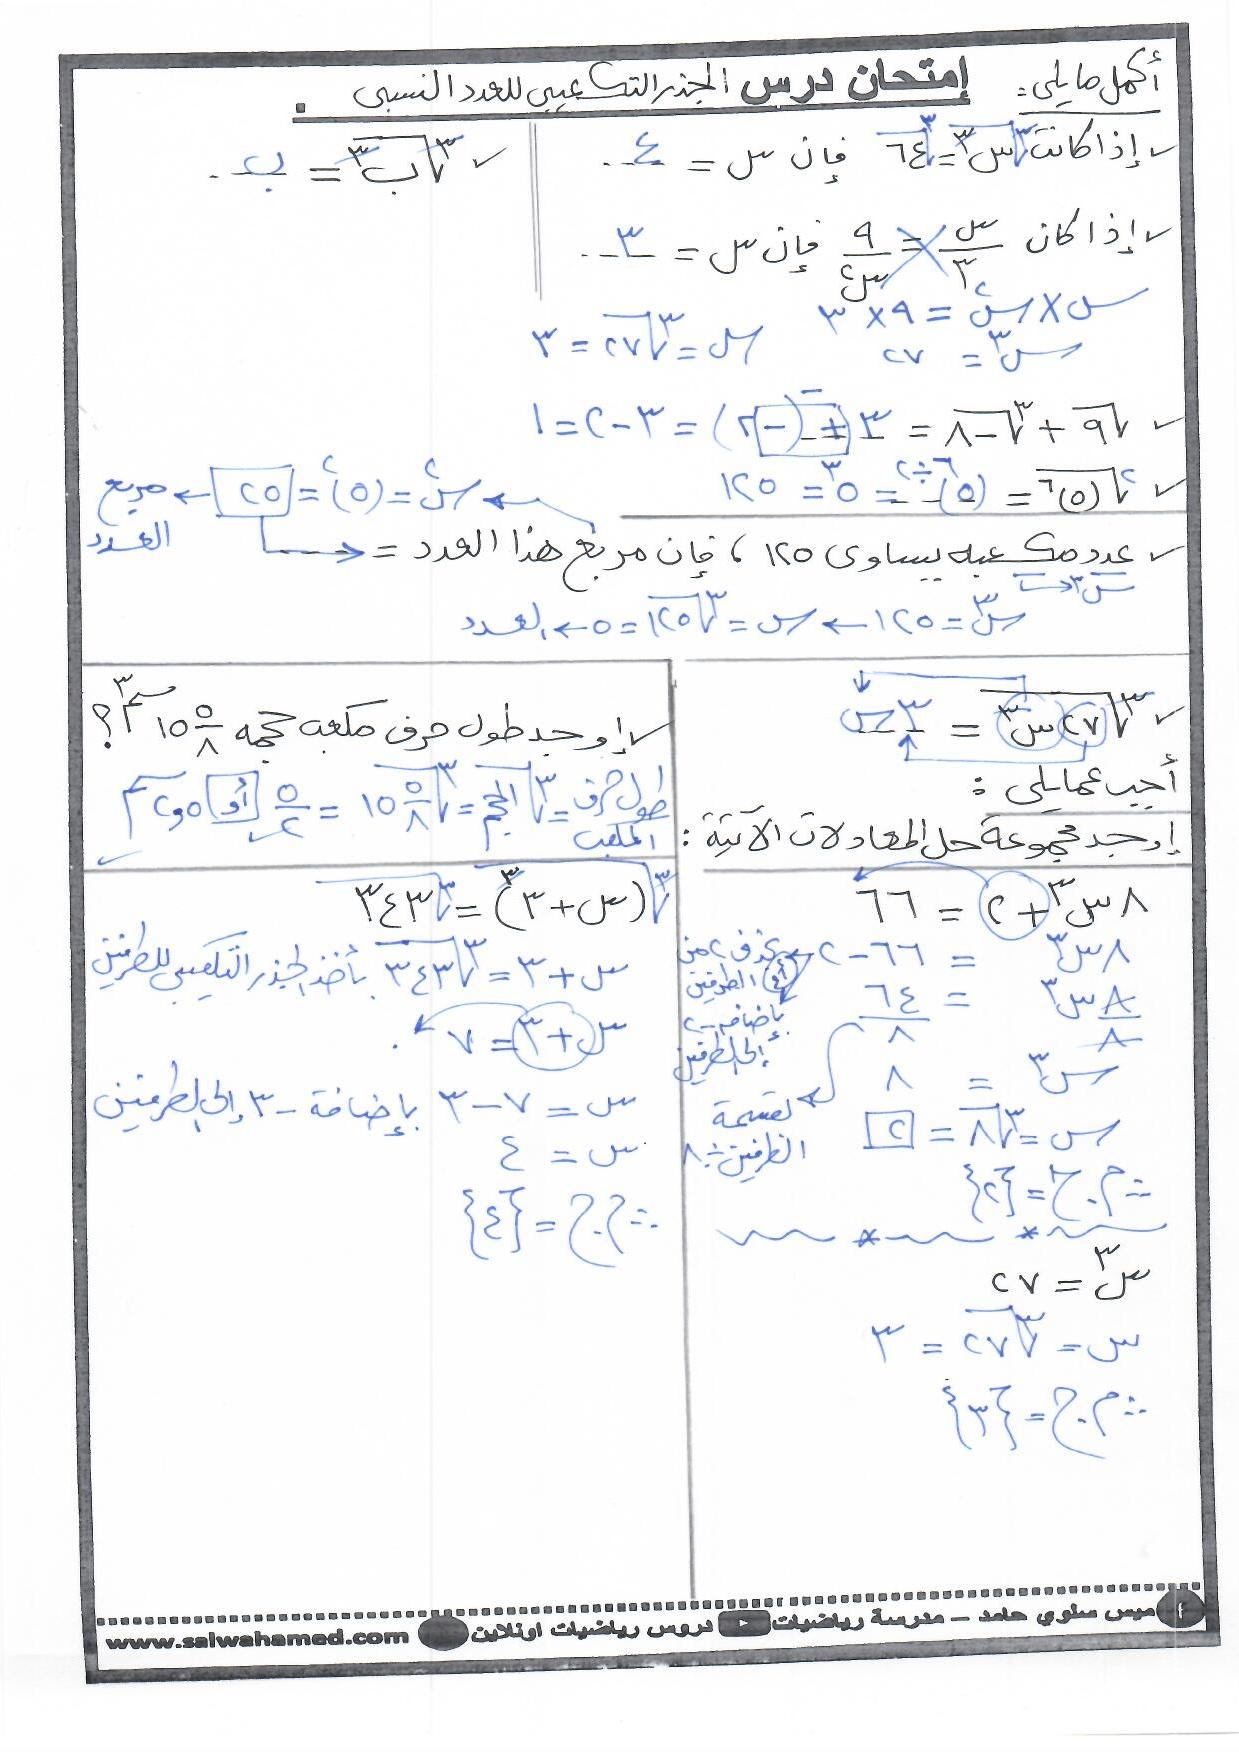 أكمل ما يلي: إمتحان درس الجذر التكعيبي للعدد النسبى .
✓ إذا كانت ∛س٣ = ∛٦٤ فإن س = ٤
✓ ∛ب٣ = ب
✓ إذا كان س/٣ = ٩/س٢ فإن س = ٣
س × س٢ = ٩ × ٣
س٣ = ٢٧
س = ∛٢٧ = ٣
✓ √٩ + ∛-٨ = ٣ + (-٢) = ٣ - ٢ = ١
✓ √(٥)٦ = (٥)٦÷٢ = ٥٣ = ١٢٥
✓ عدد مكعبه يساوى ١٢٥ ، فإن مربع هذا العدد =
س٢ = (٥)٢ = ٢٥ ← مربع العدد
س٣ = ١٢٥ ← س = ∛١٢٥ = ٥ ← العدد
✓ ∛٢٧س٣ = ٣س
✓ إوجد طول حرف مكعب حجمه ١٥ ٥/٨ سم٣ ؟
طول حرف المكعب = ∛الحجم = ∛١٥ ٥/٨ = ٥/٢ أو ٢,٥ سم
أجب عما يلي :
إوجد مجموعة حل المعادلات الآتية :
٨س٣ + ٢ = ٦٦
٨س٣ = ٦٦ - ٢
بحذف ٢ من الطرفين
أو
بإضافة -٢ إلى الطرفين
٨س٣/٨ = ٦٤/٨
س٣ = ٨
بقسمة الطرفين ÷ ٨
س = ∛٨ = ٢
∴ م.ح = {٢}
س٣ = ٢٧
س = ∛٢٧ = ٣
∴ م.ح = {٣}
∛(س + ٣)٣ = ∛٣٤٣
س + ٣ = ∛٣٤٣ بأخذ الجذر التكعيبي للطرفين
س + ٣ = ٧
س = ٧ - ٣ بإضافة -٣ إلى الطرفين
س = ٤
∴ م.ح = {٤}
ميس سلوي حامد – مدرسة رياضيات دروس رياضيات اونلاين www.salwahamed.com